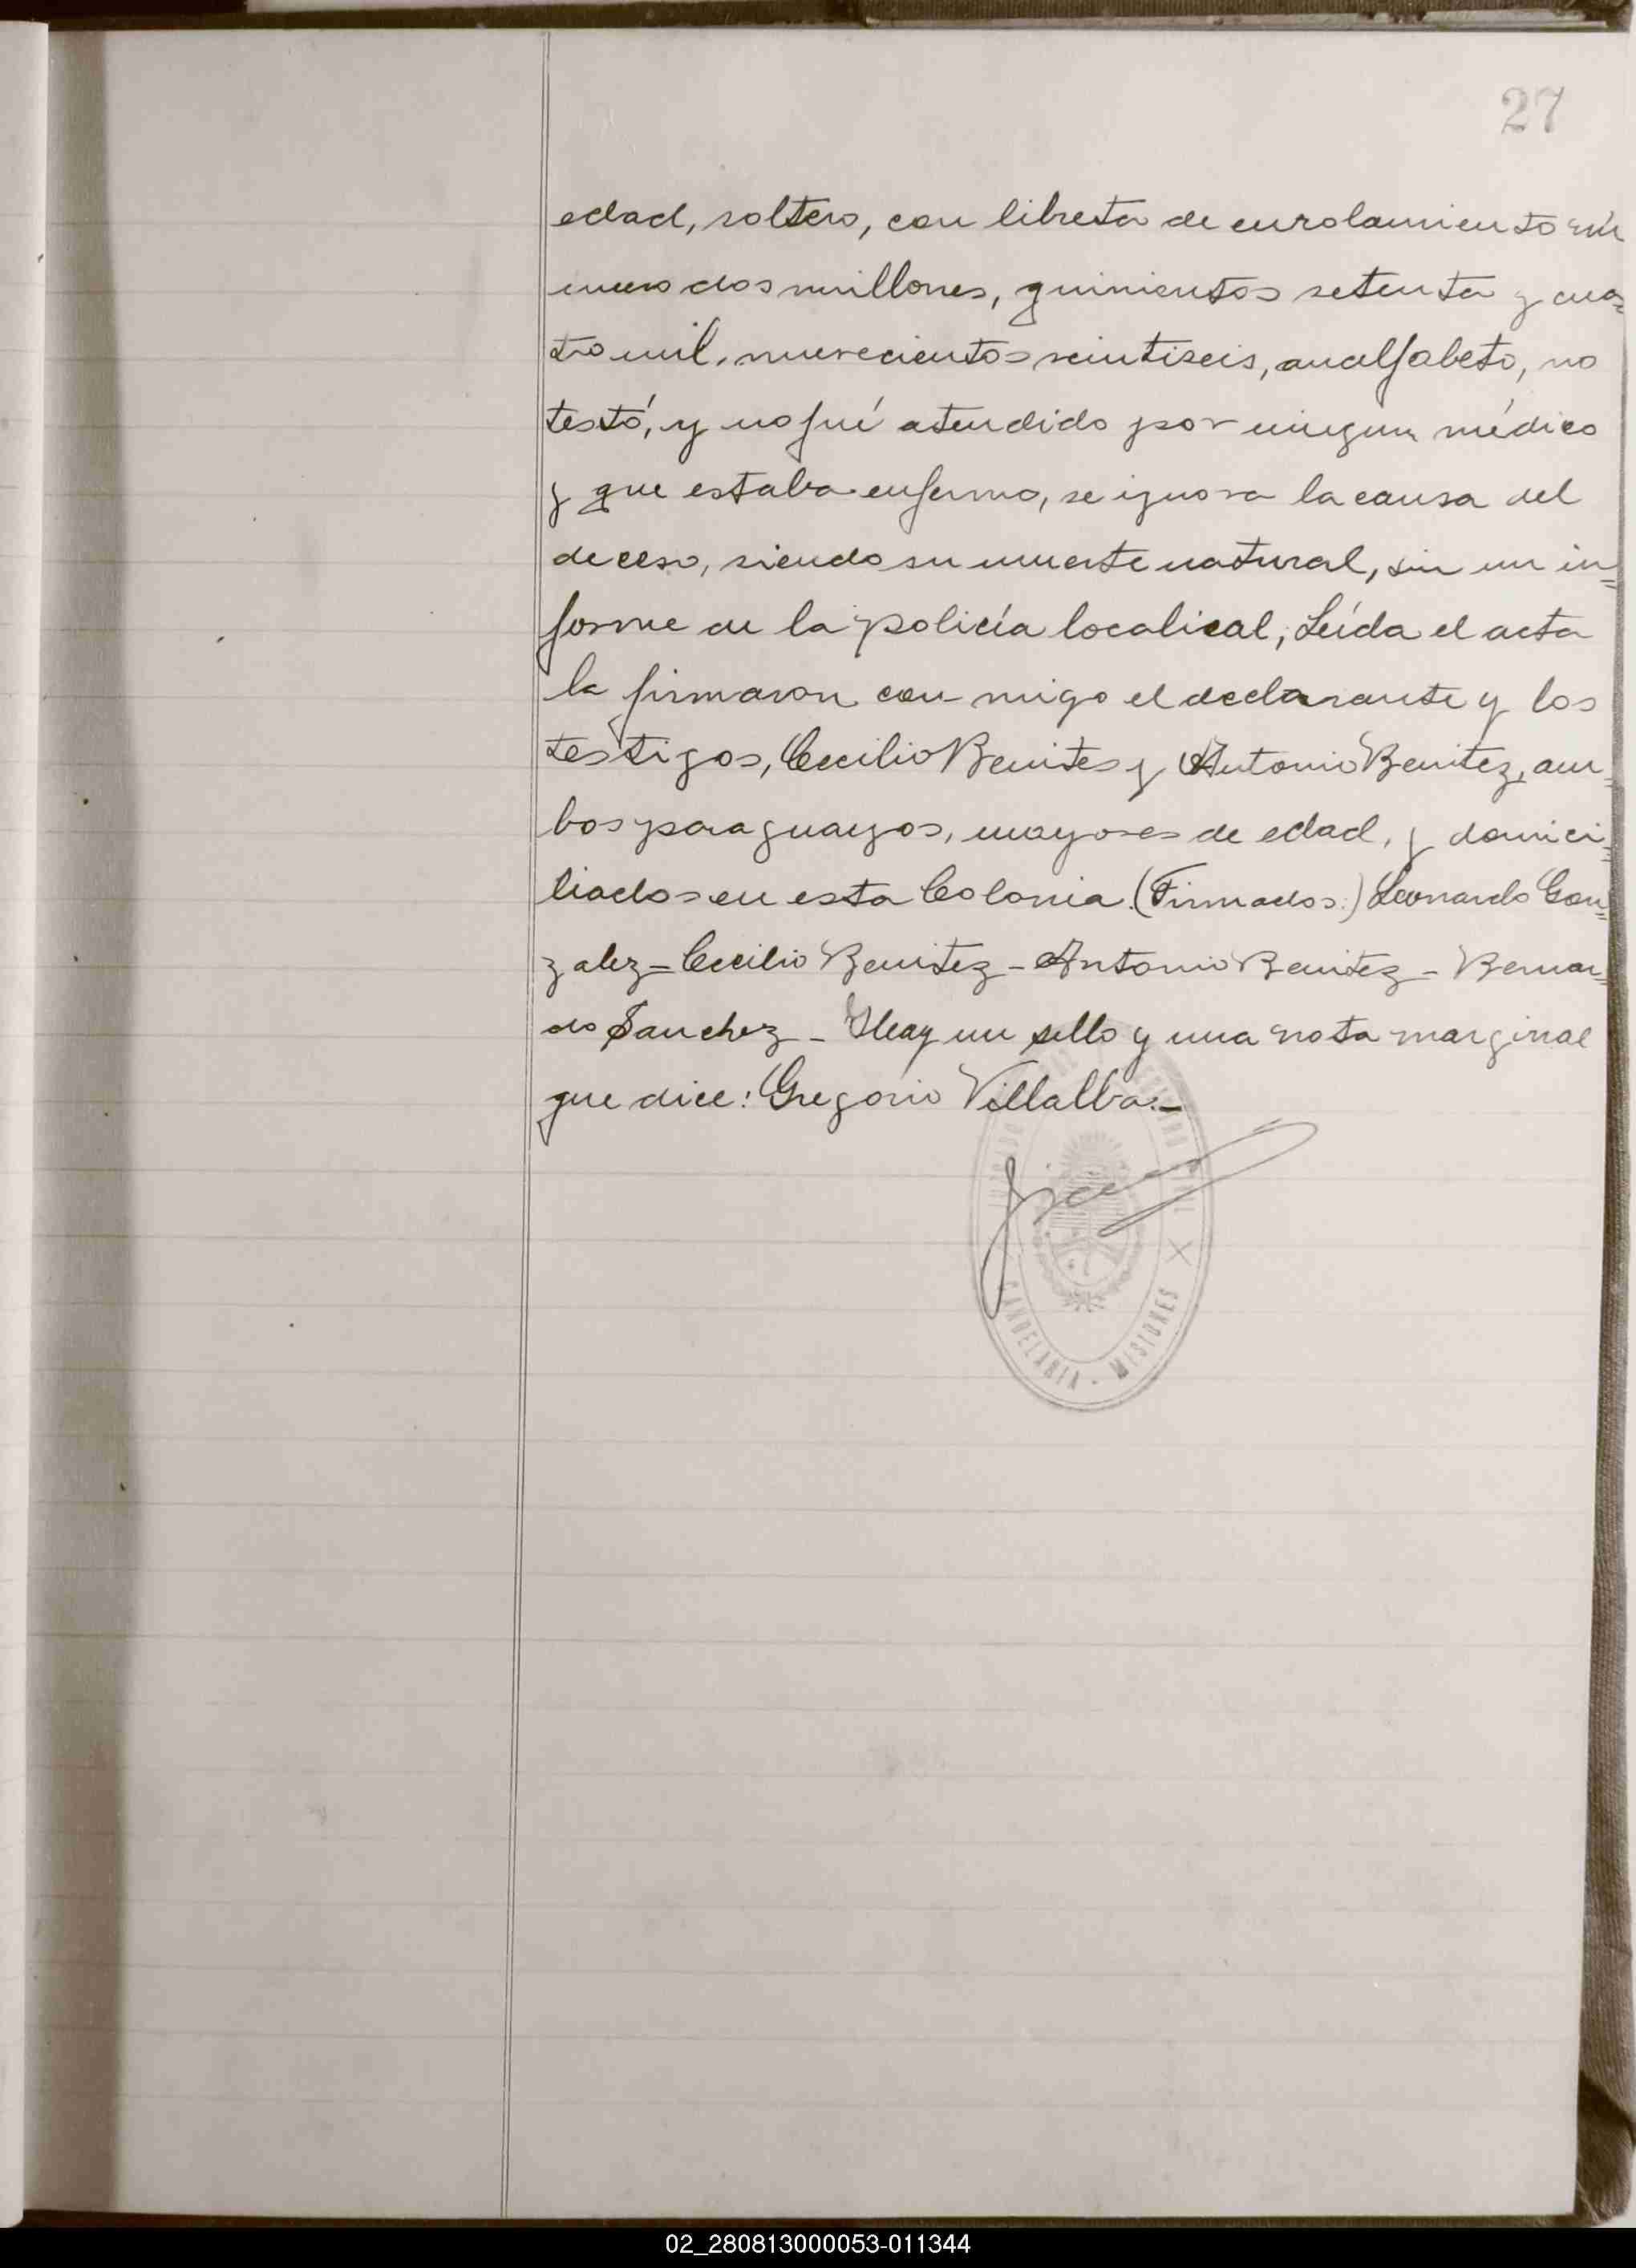 27
edad, soltero, con libreta de enrolamiento nú
mero dos millones, quinientos setenta y cua=
tro mil, novecientos veintiseis, analfabeto, no
testó, y no fué atendido por ningun médico
y que estaba enfermo, se ignora la causa del
deceso, siendo su muerte natural, sin un in=
forme de la policía local; Leída el acta
la firmaron con migo el declarante y los
testigos, Cecilio Benites y Antonio Benitez, am=
bos paraguayos, mayores de edad, y domici=
liados en esta Colonia. (Firmados:) Leonardo Gon=
zalez = Cecilio Benitez - Antonio Benitez - Bernar=
do Sanchez - Hay un sello y una nota marginal
que dice: Gregorio Villalba.-
CANDELARIA - MISIONES
02_280813000053-011344